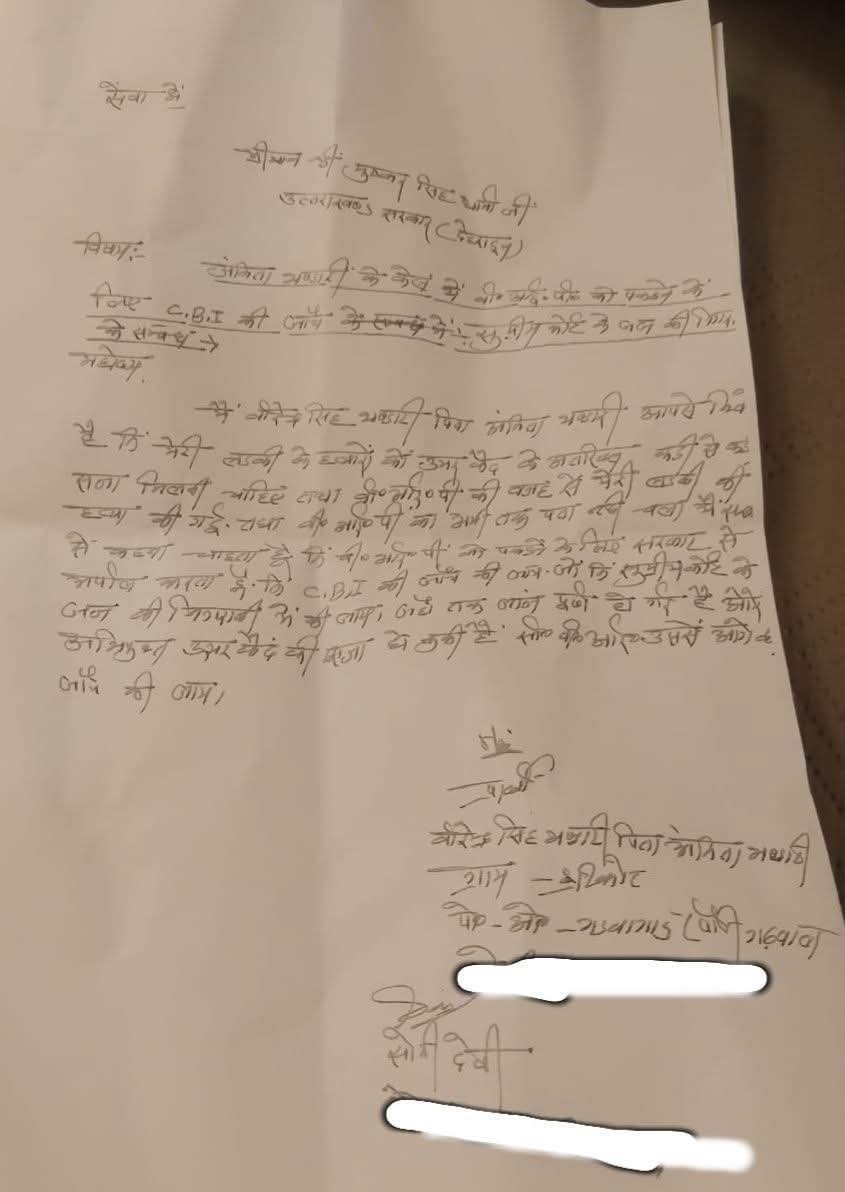 सेवा में
श्रीमान श्री पुष्कर सिंह धामी जी
उत्तराखण्ड सरकार (देहरादून)
विषय:-
अंकिता भण्डारी के केस में वी० आई० पी० को पकडने के
लिए C.B.I की जाँच के सम्बधं में:- सुप्रीम कोर्ट के जज की
के सम्बधं →
महोदय,
मैं वीरेन्द्र सिंह भण्डारी पिता अंकिता भण्डारी आपसे
है कि मेरी लडकी के हत्यारों को उम्र कैद के अतिरिक्त कडी से
सजा मिलनी चाहिए तथा वी० आई० पी की वजह से मेरी लडकी की
हत्या की गई. तथा वी० आई० पी का अभी तक पता नही चला मैं
से कहना चाहता हूँ कि वी० आई० पी को पकडने के लिए सरकार से
अपील करता हूँ. कि C.B.I की जाँच की जाय. जो कि सुप्रीम कोर्ट के
जज की निगरानी में की जाय। जहाँ तक जांच पूर्ण हो गई है और
अभियुक्त उम्र कैद की सजा हो चुकी है उससे आगे
जाँच की जाय।
प्रार्थी
वीरेन्द्र सिंह भण्डारी पिता अंकिता भण्डारी
ग्राम – श्रीकोट
पो० - ओ० – (पौडी गढ़वाल
सोनी देवी